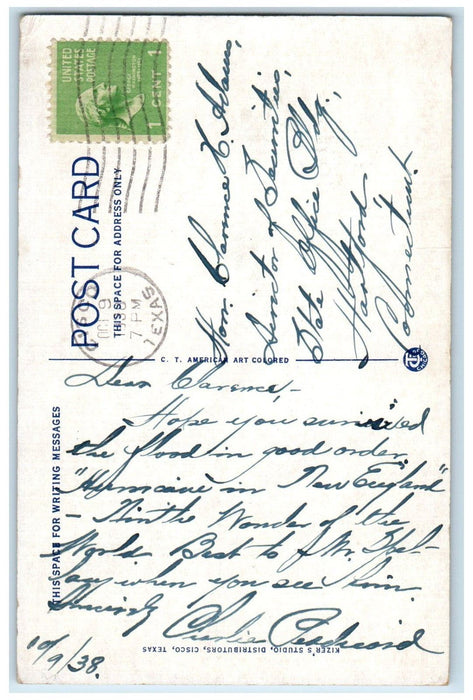 UNITED STATES POSTAGE
1 CENT 1
POST CARD
THIS SPACE FOR ADDRESS ONLY
CISCO
OCT 9
7 PM
TEXAS
Hon. Clarence H. Adams,
of Securities,
State Office Bldg,
Hartford
Connecticut.
C. T. AMERICAN ART COLORED
THIS SPACE FOR WRITING MESSAGES
Dear Clarence,-
Hope you survived
the flood in good order
"Hurricane in New England"
- Ninth Wonder of the
World. Best to Mr.
when you see him.
Sincerely
Charlie
10/9/38.
KIZER'S STUDIO, DISTRIBUTORS, CISCO, TEXAS